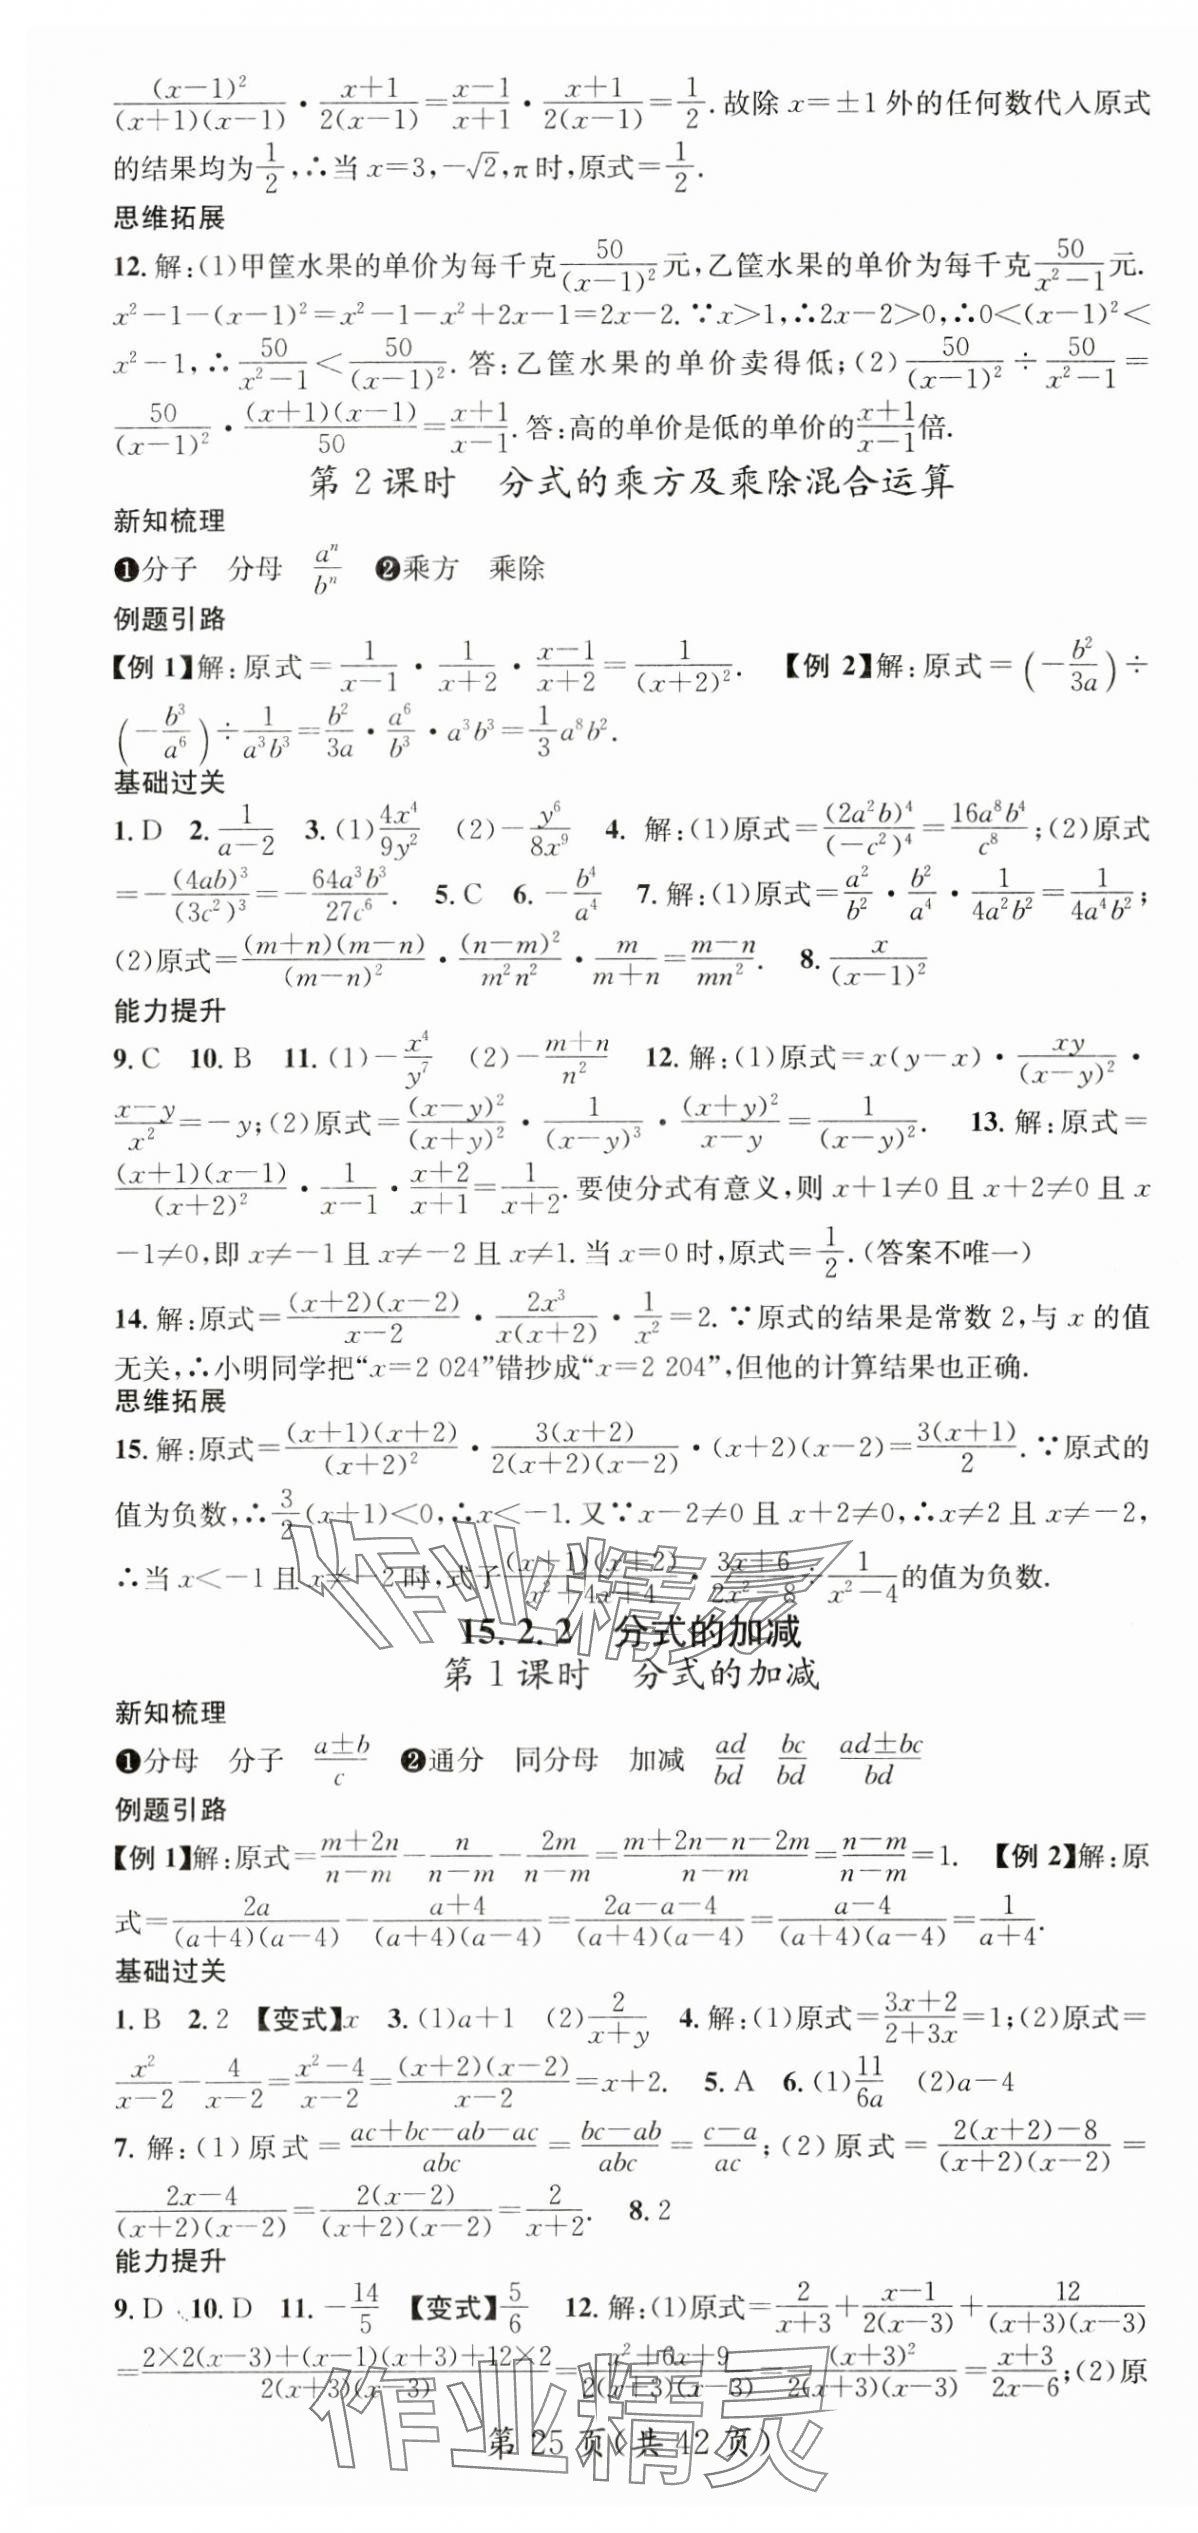 (x−1)²/((x+1)(x−1))·(x+1)/(2(x−1))=(x−1)/(x+1)·(x+1)/(2(x−1))=1/2.故除 x=±1 外的任何数代入原式
的结果均为1/2,∴当 x=3,−√2,π时,原式=1/2.
思维拓展
12.解:(1)甲筐水果的单价为每千克50/(x−1)²元,乙筐水果的单价为每千克50/(x²−1)元.
x²−1−(x−1)²=x²−1−x²+2x−1=2x−2.∵x>1,∴2x−2>0,∴0<(x−1)²<
x²−1,∴50/(x²−1)<50/(x−1)².答:乙筐水果的单价卖得低;(2)50/(x−1)²÷50/(x²−1)=
50/(x−1)²·((x+1)(x−1))/50=(x+1)/(x−1).答:高的单价是低的单价的(x+1)/(x−1)倍.
第2课时 分式的乘方及乘除混合运算
新知梳理
❶分子 分母 aⁿ/bⁿ ❷乘方 乘除
例题引路
【例1】解:原式=1/(x−1)·1/(x+2)·(x−1)/(x+2)=1/(x+2)². 【例2】解:原式=(−b²/3a)÷
(−b³/a⁶)÷1/(a³b³)=b²/3a·a⁶/b³·a³b³=1/3a⁸b².
基础过关
1.D 2.1/(a−2) 3.(1)4x⁴/9y² (2)−y⁶/8x⁹ 4. 解:(1)原式=(2a²b)⁴/(−c²)⁴=16a⁸b⁴/c⁸;(2)原式
=−(4ab)³/(3c²)³=−64a³b³/27c⁶. 5.C 6.−b⁴/a⁴ 7.解:(1)原式=a²/b²·b²/a⁴·1/(4a²b²)=1/(4a⁴b²);
(2)原式=((m+n)(m−n))/(m−n)²·(n−m)²/(m²n²)·m/(m+n)=(m−n)/(mn²). 8.x/(x−1)²
能力提升
9.C 10.B 11.(1)−x⁴/y⁷ (2)−(m+n)/n² 12.解:(1)原式=x(y−x)·xy/(x−y)²·
(x−y)/x²=−y;(2)原式=(x−y)²/(x+y)²·1/(x−y)³·(x+y)²/(x−y)=1/(x−y)². 13.解:原式=
((x+1)(x−1))/(x+2)²·1/(x−1)·(x+2)/(x+1)=1/(x+2).要使分式有意义,则 x+1≠0 且 x+2≠0 且 x
−1≠0,即 x≠−1 且 x≠−2 且 x≠1.当 x=0 时,原式=1/2.(答案不唯一)
14.解:原式=((x+2)(x−2))/(x−2)·2x³/(x(x+2))·1/x²=2.∵原式的结果是常数 2,与 x 的值
无关,∴小明同学把“x=2 024”错抄成“x=2 204”,但他的计算结果也正确.
思维拓展
15.解:原式=((x+1)(x+2))/(x+2)²·3(x+2)/(2(x+2)(x−2))·(x+2)(x−2)=3(x+1)/2.∵原式的
值为负数,∴3/2(x+1)<0,∴x<−1.又∵x−2≠0 且 x+2≠0,∴x≠2 且 x≠−2,
∴当 x<−1 且 x≠−2 时,式子((x+1)(x+2))/(x²+4x+4)·(3x+6)/(2x²−8)÷1/(x²−4)的值为负数.
15.2.2 分式的加减
第1课时 分式的加减
新知梳理
❶分母 分子 (a±b)/c ❷通分 同分母 加减 ad/bd bc/bd (ad±bc)/bd
例题引路
【例1】解:原式=(m+2n)/(n−m)−n/(n−m)−2m/(n−m)=(m+2n−n−2m)/(n−m)=(n−m)/(n−m)=1. 【例2】解:原
式=2a/((a+4)(a−4))−(a+4)/((a+4)(a−4))=(2a−a−4)/((a+4)(a−4))=(a−4)/((a+4)(a−4))=1/(a+4).
基础过关
1.B 2.2 【变式】x 3.(1)a+1 (2)2/(x+y) 4.解:(1)原式=(3x+2)/(2+3x)=1;(2)原式=
x²/(x−2)−4/(x−2)=(x²−4)/(x−2)=((x+2)(x−2))/(x−2)=x+2. 5.A 6.(1)11/6a (2)a−4
7.解:(1)原式=(ac+bc−ab−ac)/abc=(bc−ab)/abc=(c−a)/ac;(2)原式=(2(x+2)−8)/((x+2)(x−2))=
(2x−4)/((x+2)(x−2))=2(x−2)/((x+2)(x−2))=2/(x+2). 8.2
能力提升
9.D 10.D 11.−14/5 【变式】5/6 12.解:(1)原式=2/(x+3)+(x−1)/(2(x−3))+12/((x+3)(x−3))
=(2×2(x−3)+(x−1)(x+3)+12×2)/(2(x+3)(x−3))=(x²+6x+9)/(2(x+3)(x−3))=(x+3)²/(2(x+3)(x−3))=(x+3)/(2x−6);(2)原
第 25 页(共 42 页)
作业精灵
作业精灵